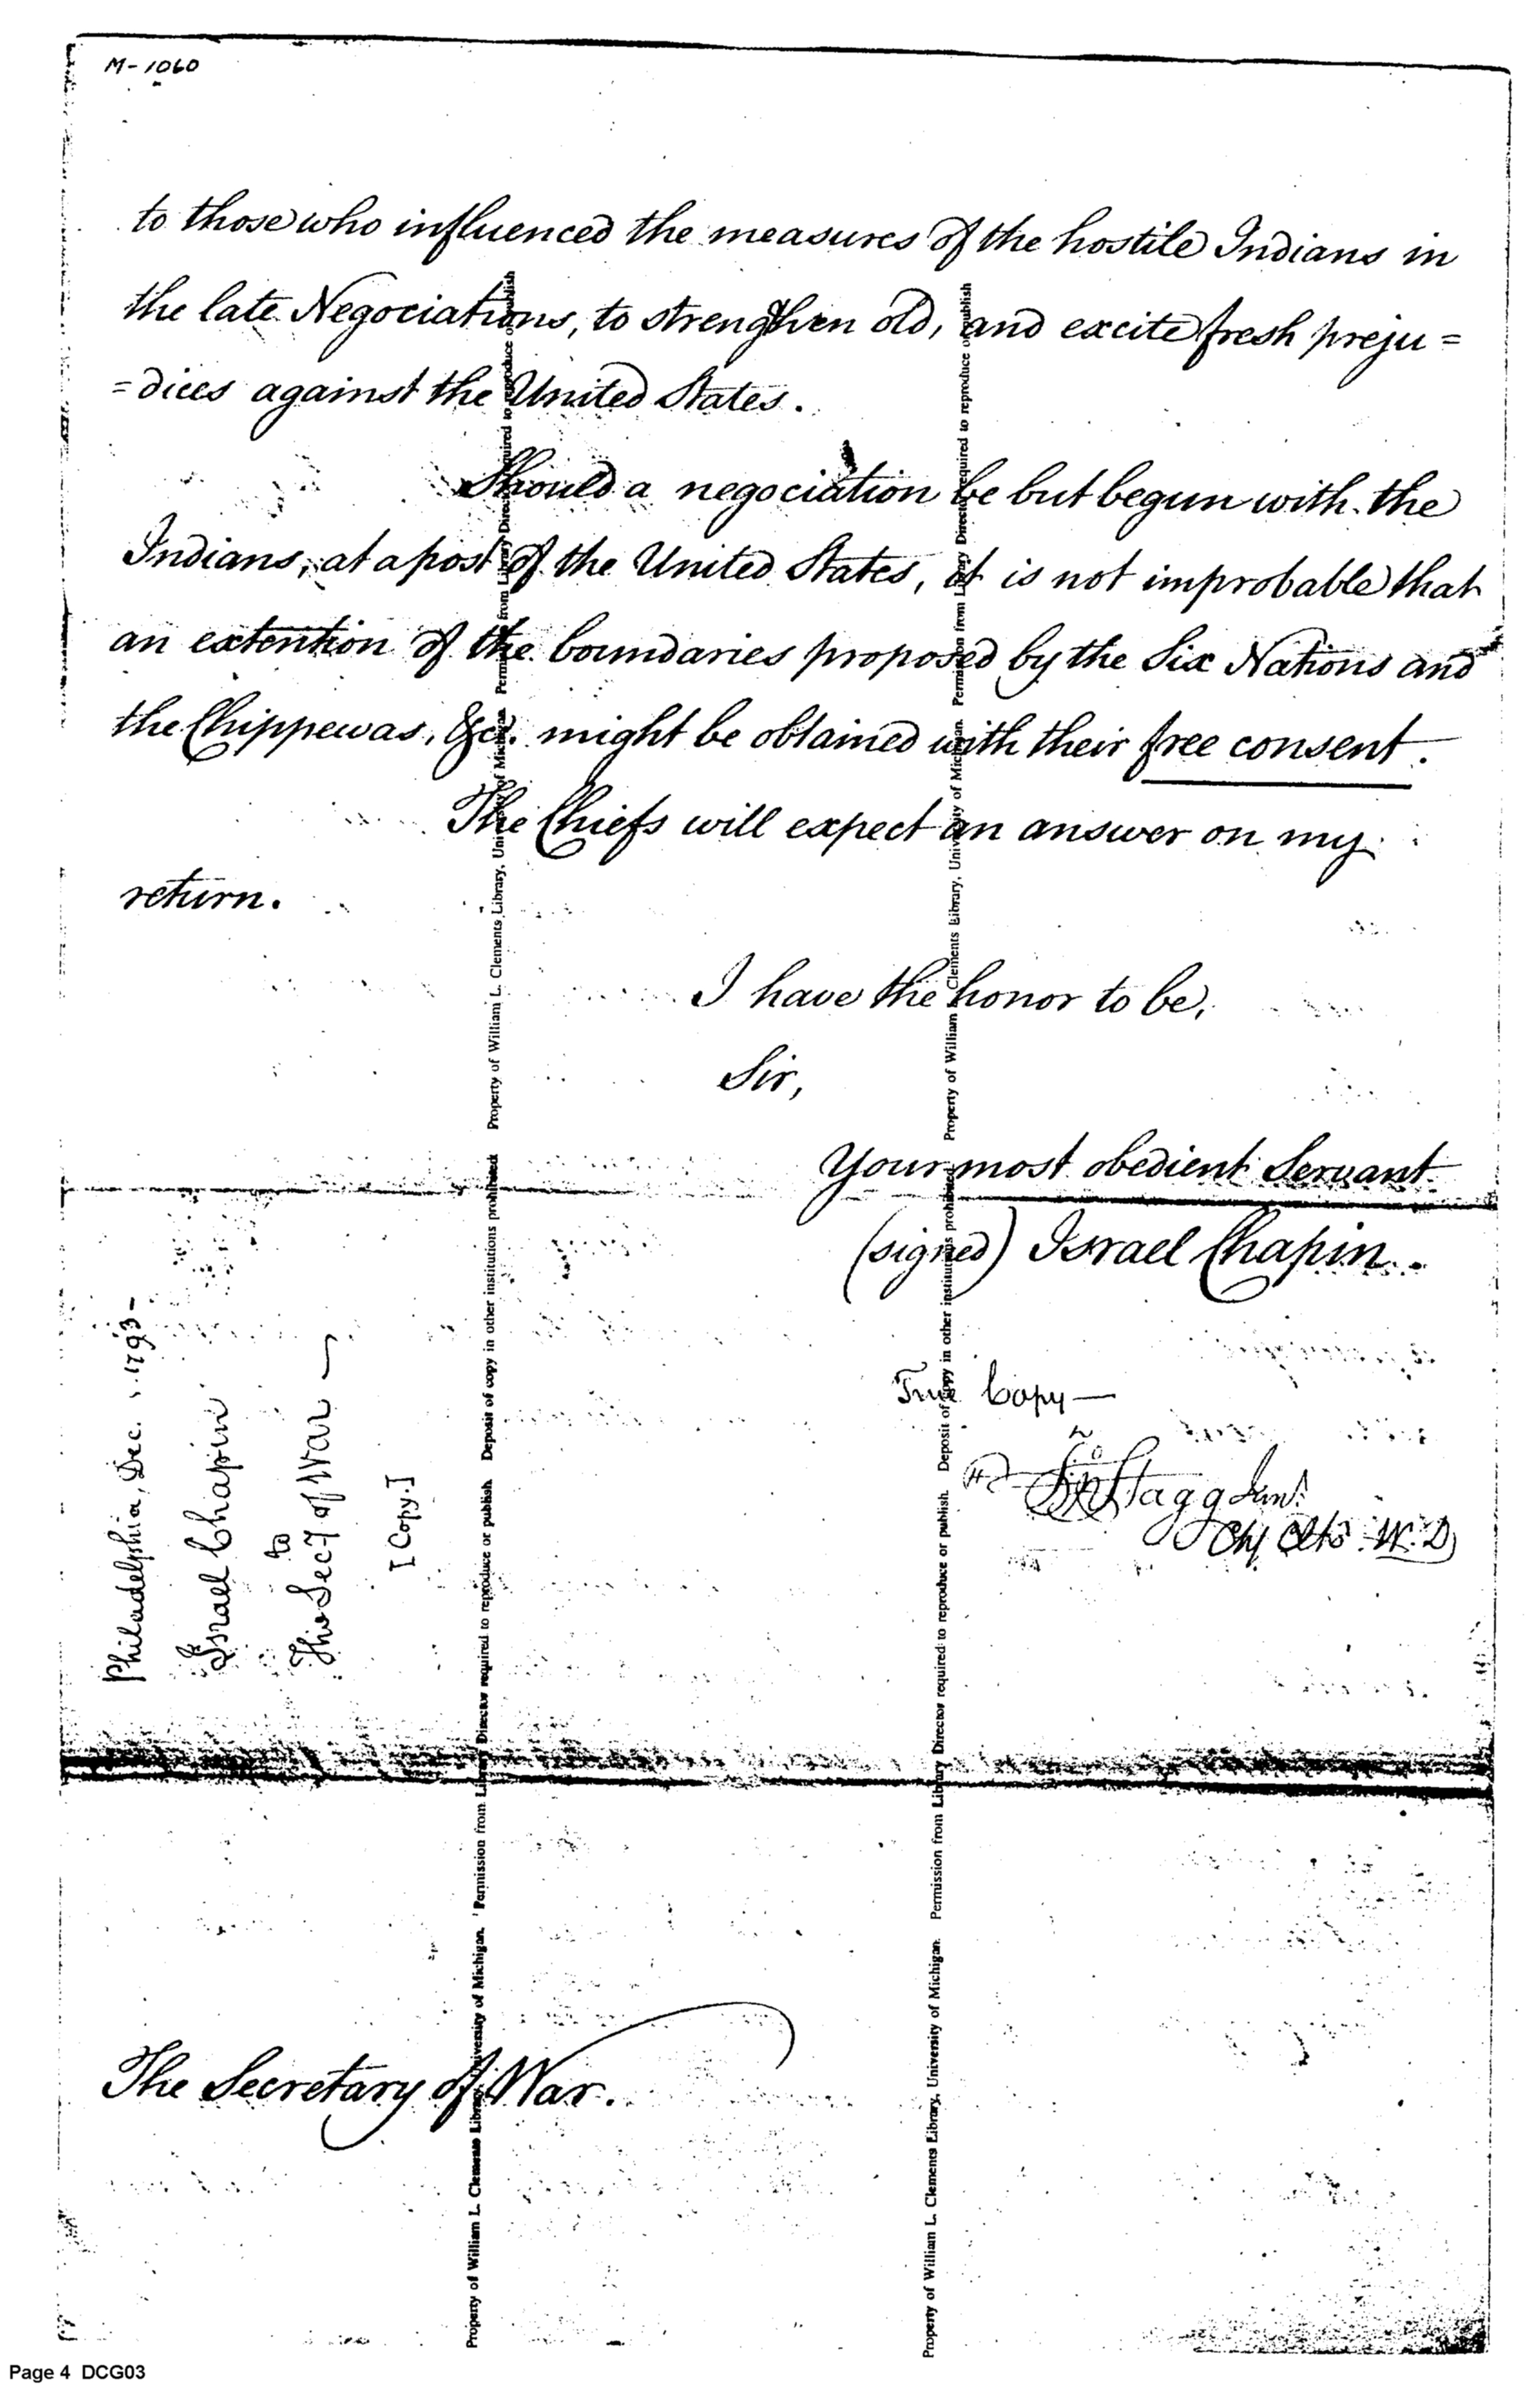 M-1060
to those who influenced the measures of the hostile Indians in
the late Negociations, to strengthen old, and excite fresh preju=
=dices against the United States.
Should a negociation be but begun with the
Indians, at a post of the United States, it is not improbable that
an extention of the boundaries proposed by the Six Nations and
the Chippewas, &ca. might be obtained with their free consent.
The Chiefs will expect an answer on my
return.
I have the honor to be,
Sir,
Your most obedient Servant
(signed) Israel Chapin.
True Copy—
Jno Stagg Junr.
Chf Clk W. D
Philadelphia, Dec. 1793-
Israel Chapin
to
The Secy of War —
[Copy.]
The Secretary of War.
Property of William L. Clements Library, University of Michigan. Permission from Library Director required to reproduce or publish. Deposit of copy in other institutions prohibited
Property of William L. Clements Library, University of Michigan. Permission from Library Director required to reproduce or publish
Property of William L. Clements Library, University of Michigan. Permission from Library Director required to reproduce or publish. Deposit of copy in other institutions prohibited
Property of William L. Clements Library, University of Michigan. Permission from Library Director required to reproduce or publish
Page 4 DCG03